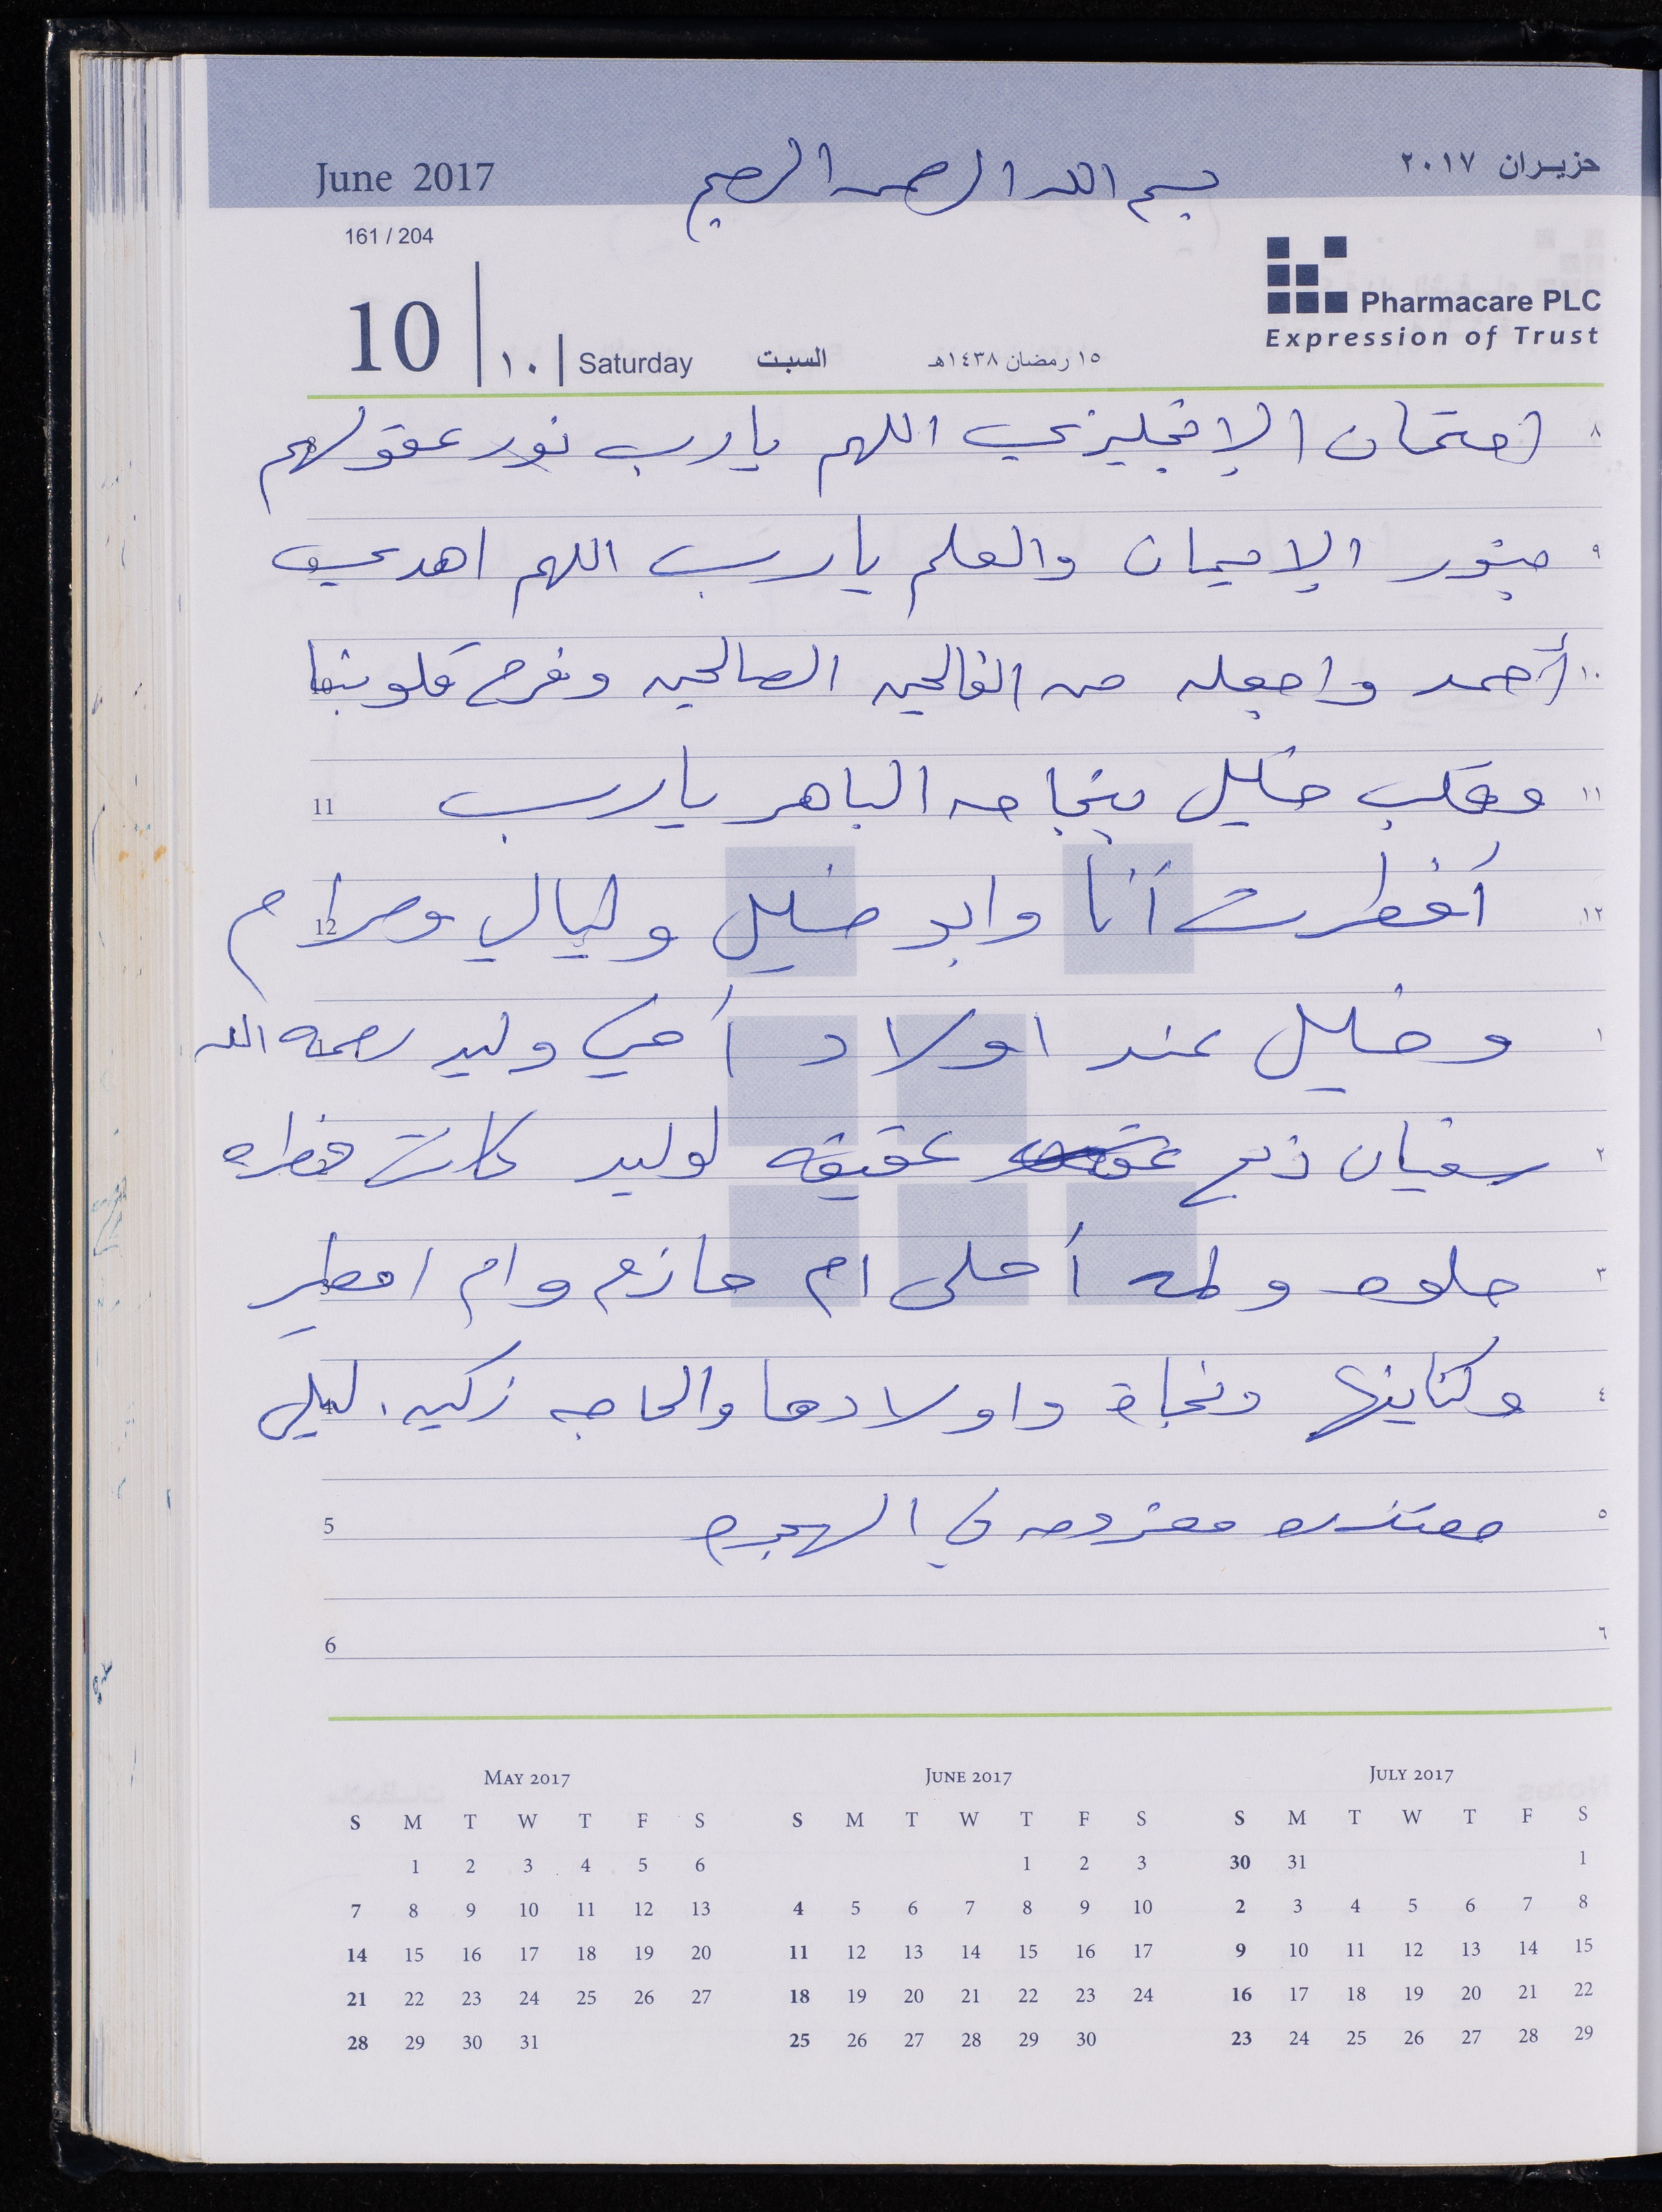 June 2017
بسم الله الرحمن الرحيم
حزيران ٢٠١٧
161 / 204
Pharmacare PLC
Expression of Trust
10 | ١٠ | Saturday السبت ١٥ رمضان ١٤٣٨هـ
٨ امتحان الإنجليزي اللهم يارب نور عقولهم
٩ بنور الإيمان والعلم يارب اللهم اهدي
١٠ أحمد واجعله من الفالحين الصالحين وفرح قلوبنا 10
١١ وقلب خليل بنجاحه الباهر يارب 11
١٢ أفطرت أنا وابو خليل وليالي ومرام 12
١ وخليل عند اولاد أخي وليد رحمه الله
٢ سفيان ذبح عقيقه لوليد كانت فطره
٣ حلوه ولمه أحلى ام حازم وام امطير 3
٤ وكناينها ونجاة واولادها والحاجه زكيه. ليلى 4
٥ معزومه في الهجره 5
٦ 6
MAY 2017
S M T W T F S
1 2 3 4 5 6
7 8 9 10 11 12 13
14 15 16 17 18 19 20
21 22 23 24 25 26 27
28 29 30 31
JUNE 2017
S M T W T F S
1 2 3
4 5 6 7 8 9 10
11 12 13 14 15 16 17
18 19 20 21 22 23 24
25 26 27 28 29 30
JULY 2017
S M T W T F S
30 31 1
2 3 4 5 6 7 8
9 10 11 12 13 14 15
16 17 18 19 20 21 22
23 24 25 26 27 28 29